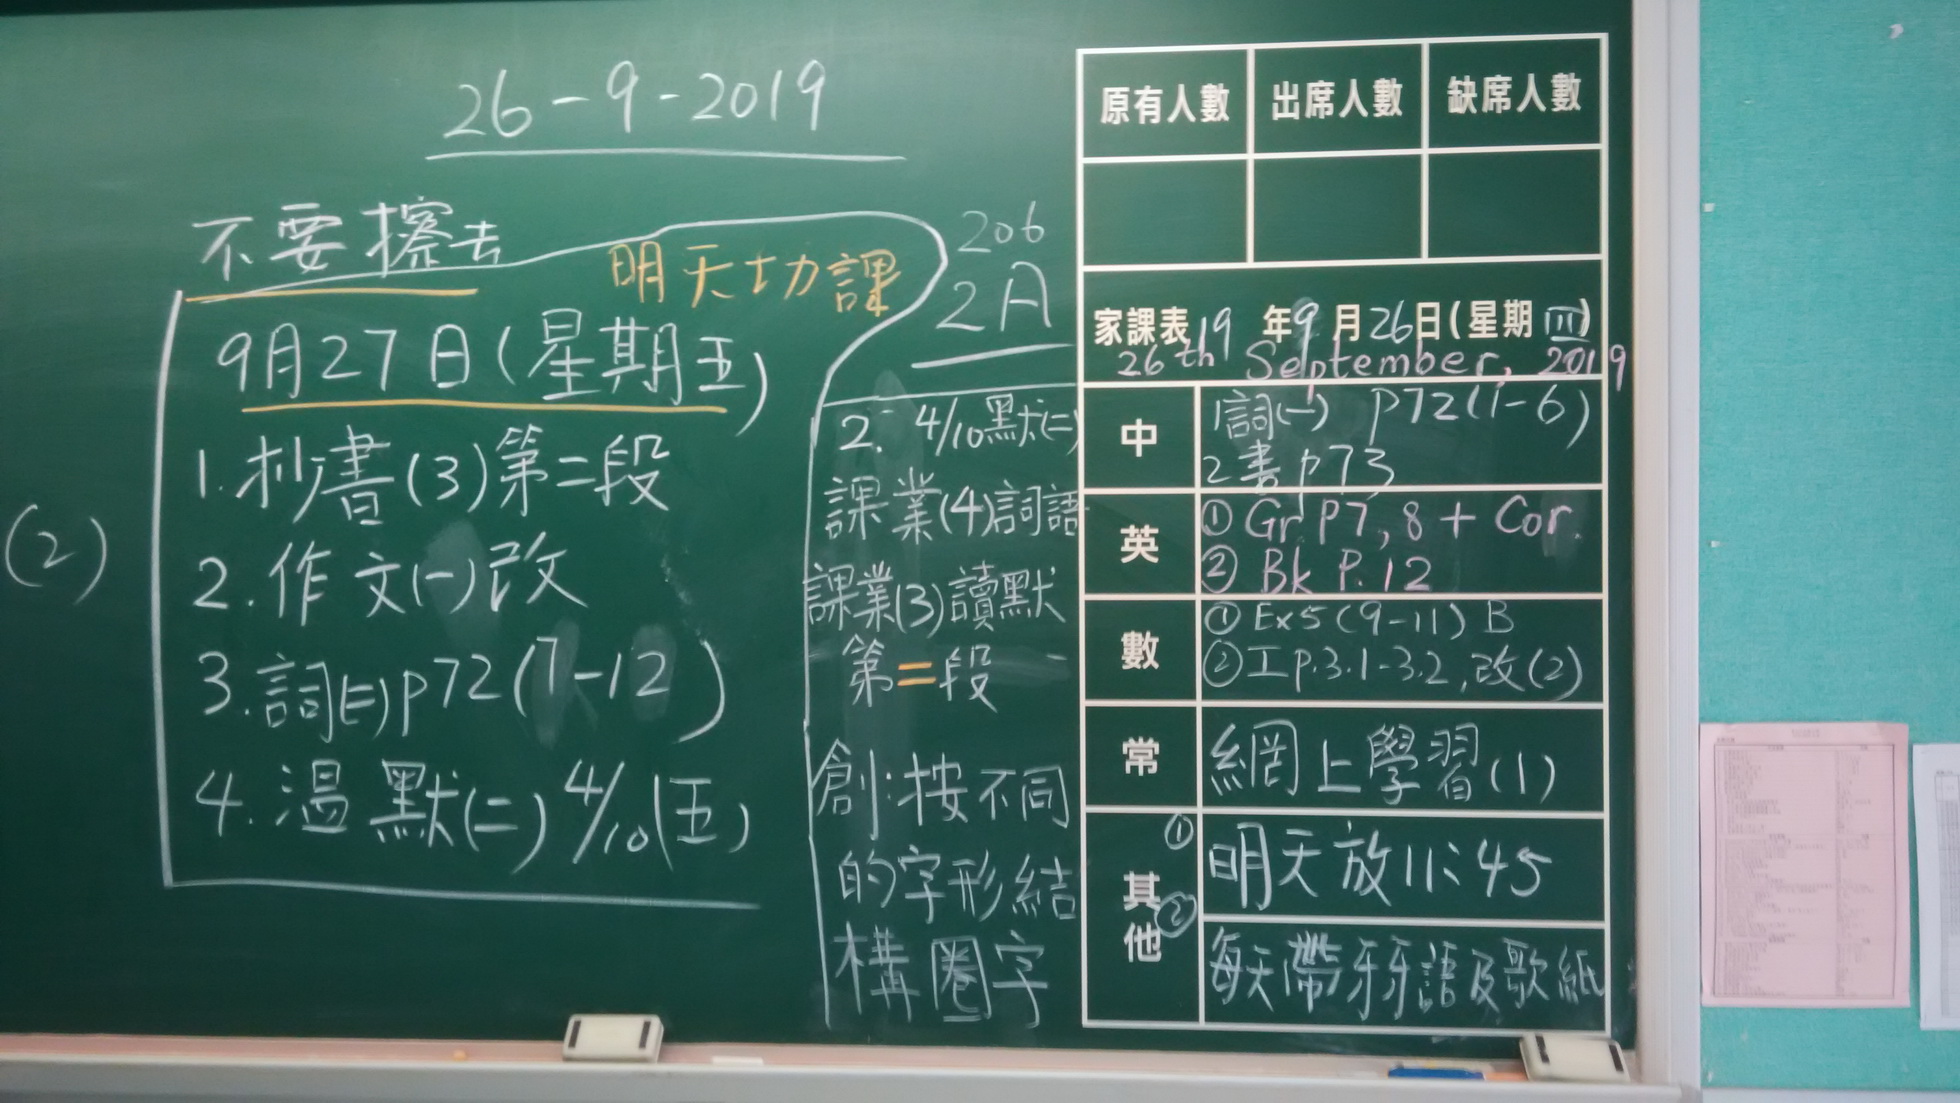 26-9-2019
不要擦去
明天功課
9月27日(星期五)
1.抄書(3)第二段
(2)
2.作文(一)改
3.詞(二)p72(7-12)
4.溫默(二)4/10(五)
206
2A
2. 4/10默(二)
課業(4)詞語
課業(3)讀默
第二段
創:按不同
的字形結
構圈字
原有人數 出席人數 缺席人數
家課表19年9月26日(星期四)
26th September, 2019
中 1詞(一) p72(1-6)
2書p73
英 ①Gr P7,8 + Cor.
②Bk P.12
數 ①Ex5(9-11)B
②工p.3.1-3.2,改(2)
常 網上學習(1)
其他 ①明天放11:45
②每天帶牙牙語及歌紙